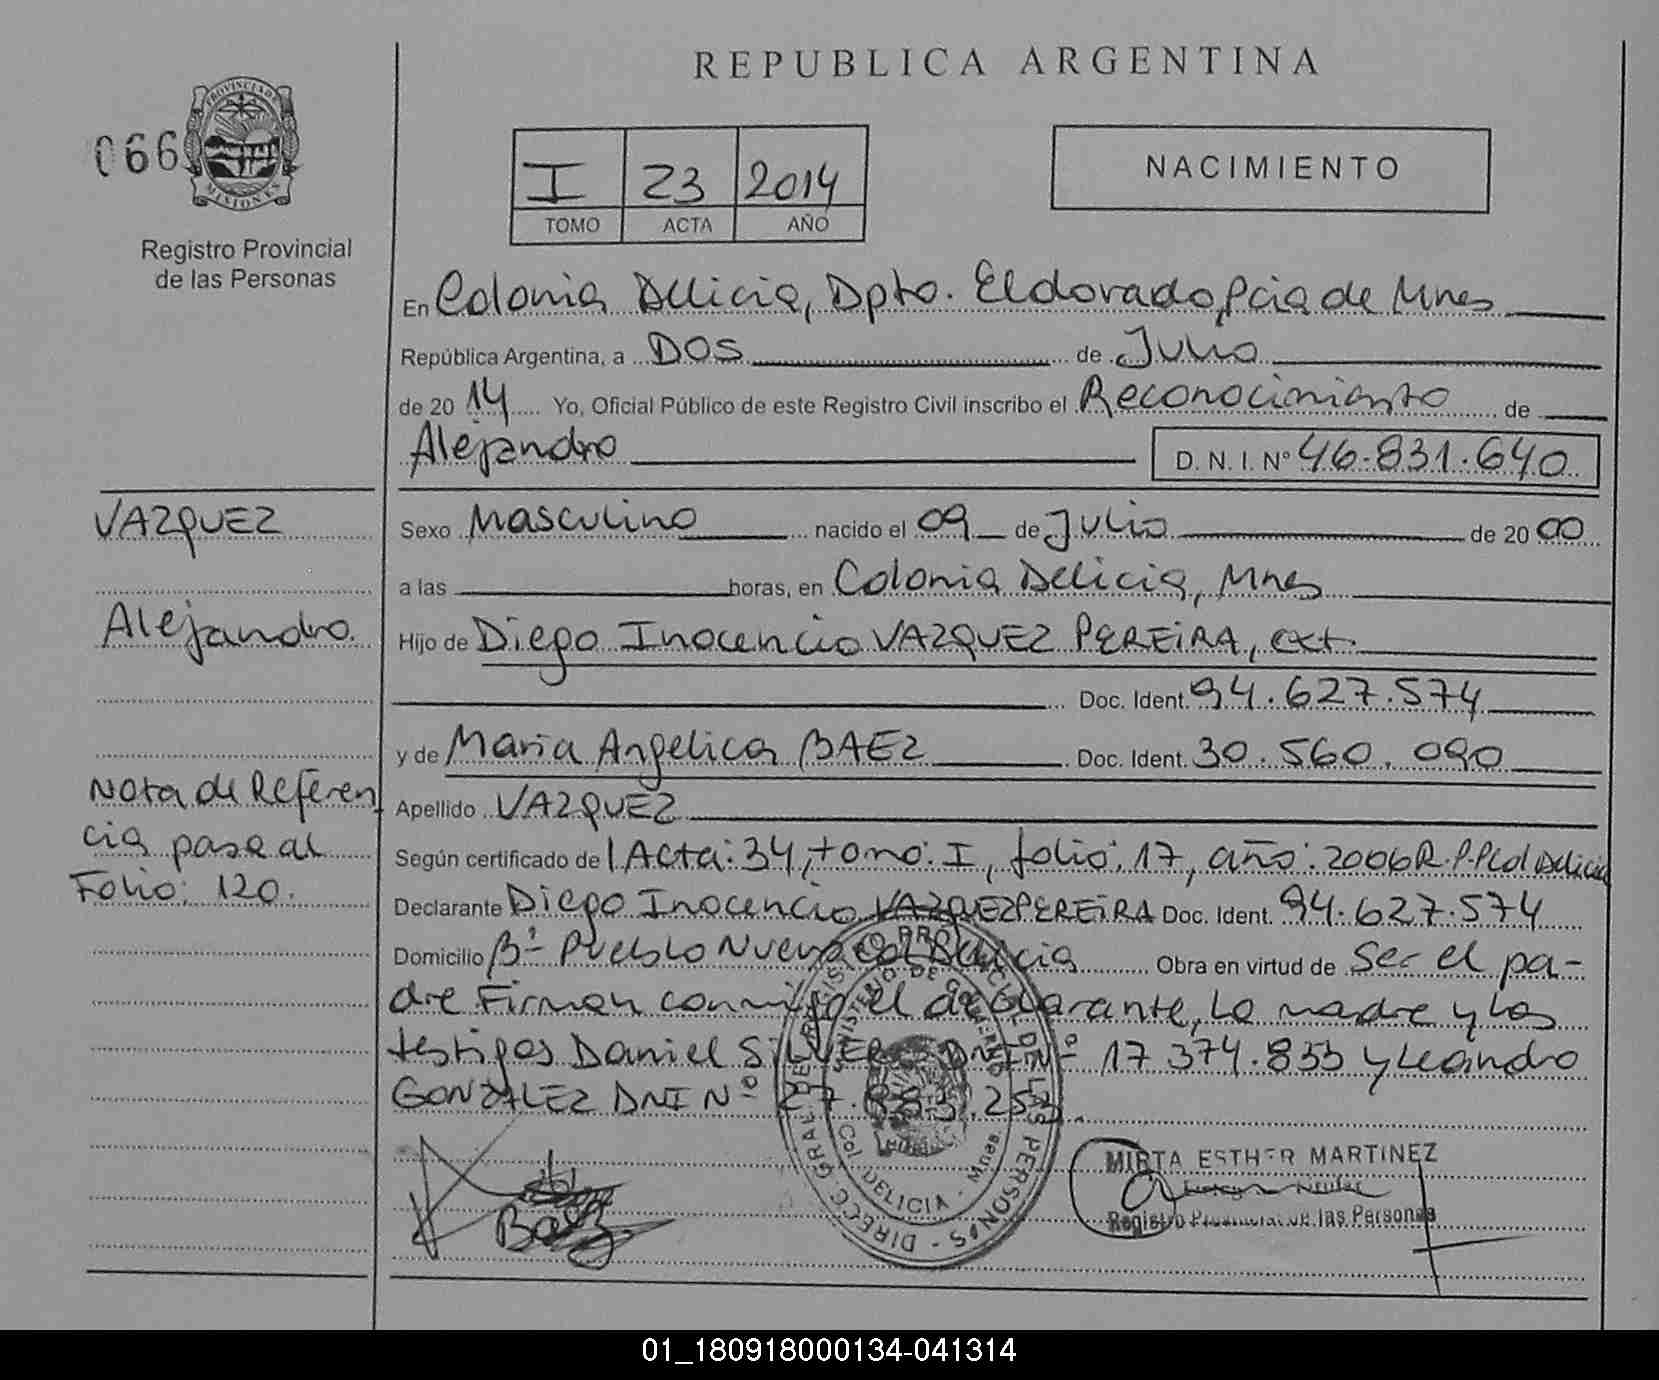 REPUBLICA ARGENTINA
066
PROVINCIA DE
MISIONES
Registro Provincial
de las Personas
I 23 2014
TOMO ACTA AÑO
NACIMIENTO
En Colonia Delicia, Dpto. Eldorado, Pcia de Mnes
República Argentina, a DOS de Julio
de 2014 Yo, Oficial Público de este Registro Civil inscribo el Reconocimiento de
Alejandro D.N.I. Nº 46.831.640
VAZQUEZ
Alejandro.
Nota de Referen
cia pase al
Folio: 120.
Sexo Masculino nacido el 09 de Julio de 2000
a las horas, en Colonia Delicia, Mnes
Hijo de Diego Inocencio VAZQUEZ PEREIRA, ext.
Doc. Ident. 94.627.574
y de Maria Angelica BAEZ Doc. Ident. 30.560.090
Apellido VAZQUEZ
Según certificado de Acta: 34, tomo: I, folio: 17, año: 2006 R.P.P Col Delicia
Declarante Diego Inocencio VAZQUEZ PEREIRA Doc. Ident. 94.627.574
Domicilio Bº Pueblo Nuevo Col Delicia Obra en virtud de Ser el pa-
dre Firman conmigo el declarante, la madre y los
testigos Daniel DNI Nº 17 374.833 y Leandro
GONZALEZ DNI Nº 27.883.253.
DIRECC GRAL DEL REGISTRO PROVINCIAL DE LAS PERSONAS
MINISTERIO DE GOBIERNO
Col DELICIA - Mnes
Baez
MIRTA ESTHER MARTINEZ
Registro Provincial de las Personas
01_180918000134-041314